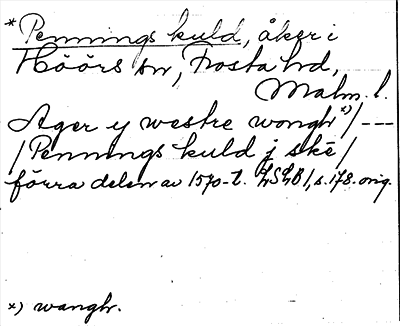 *Pennings kuld, åker i
Höörs sn, Frosta hd,
Malm. l.
Ager y westre wongh x) / ---
/ Pennings kuld j skě /
förra delen av 1570-t. LSLB 1, s. 178. orig.
x) wangh.